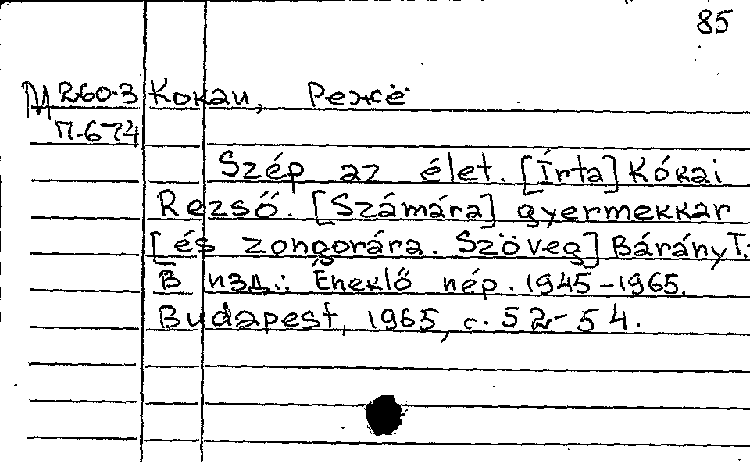 85
М 260-3 Кокаи, Режё
П-674
Szép az élet. [Írta] Kókai
Rezső. [Számára] gyermekkar
[és zongorára. Szöveg] Bárány T.
В изд.: Éneklő nép. 1945-1965.
Budapest, 1965, с. 52-54.